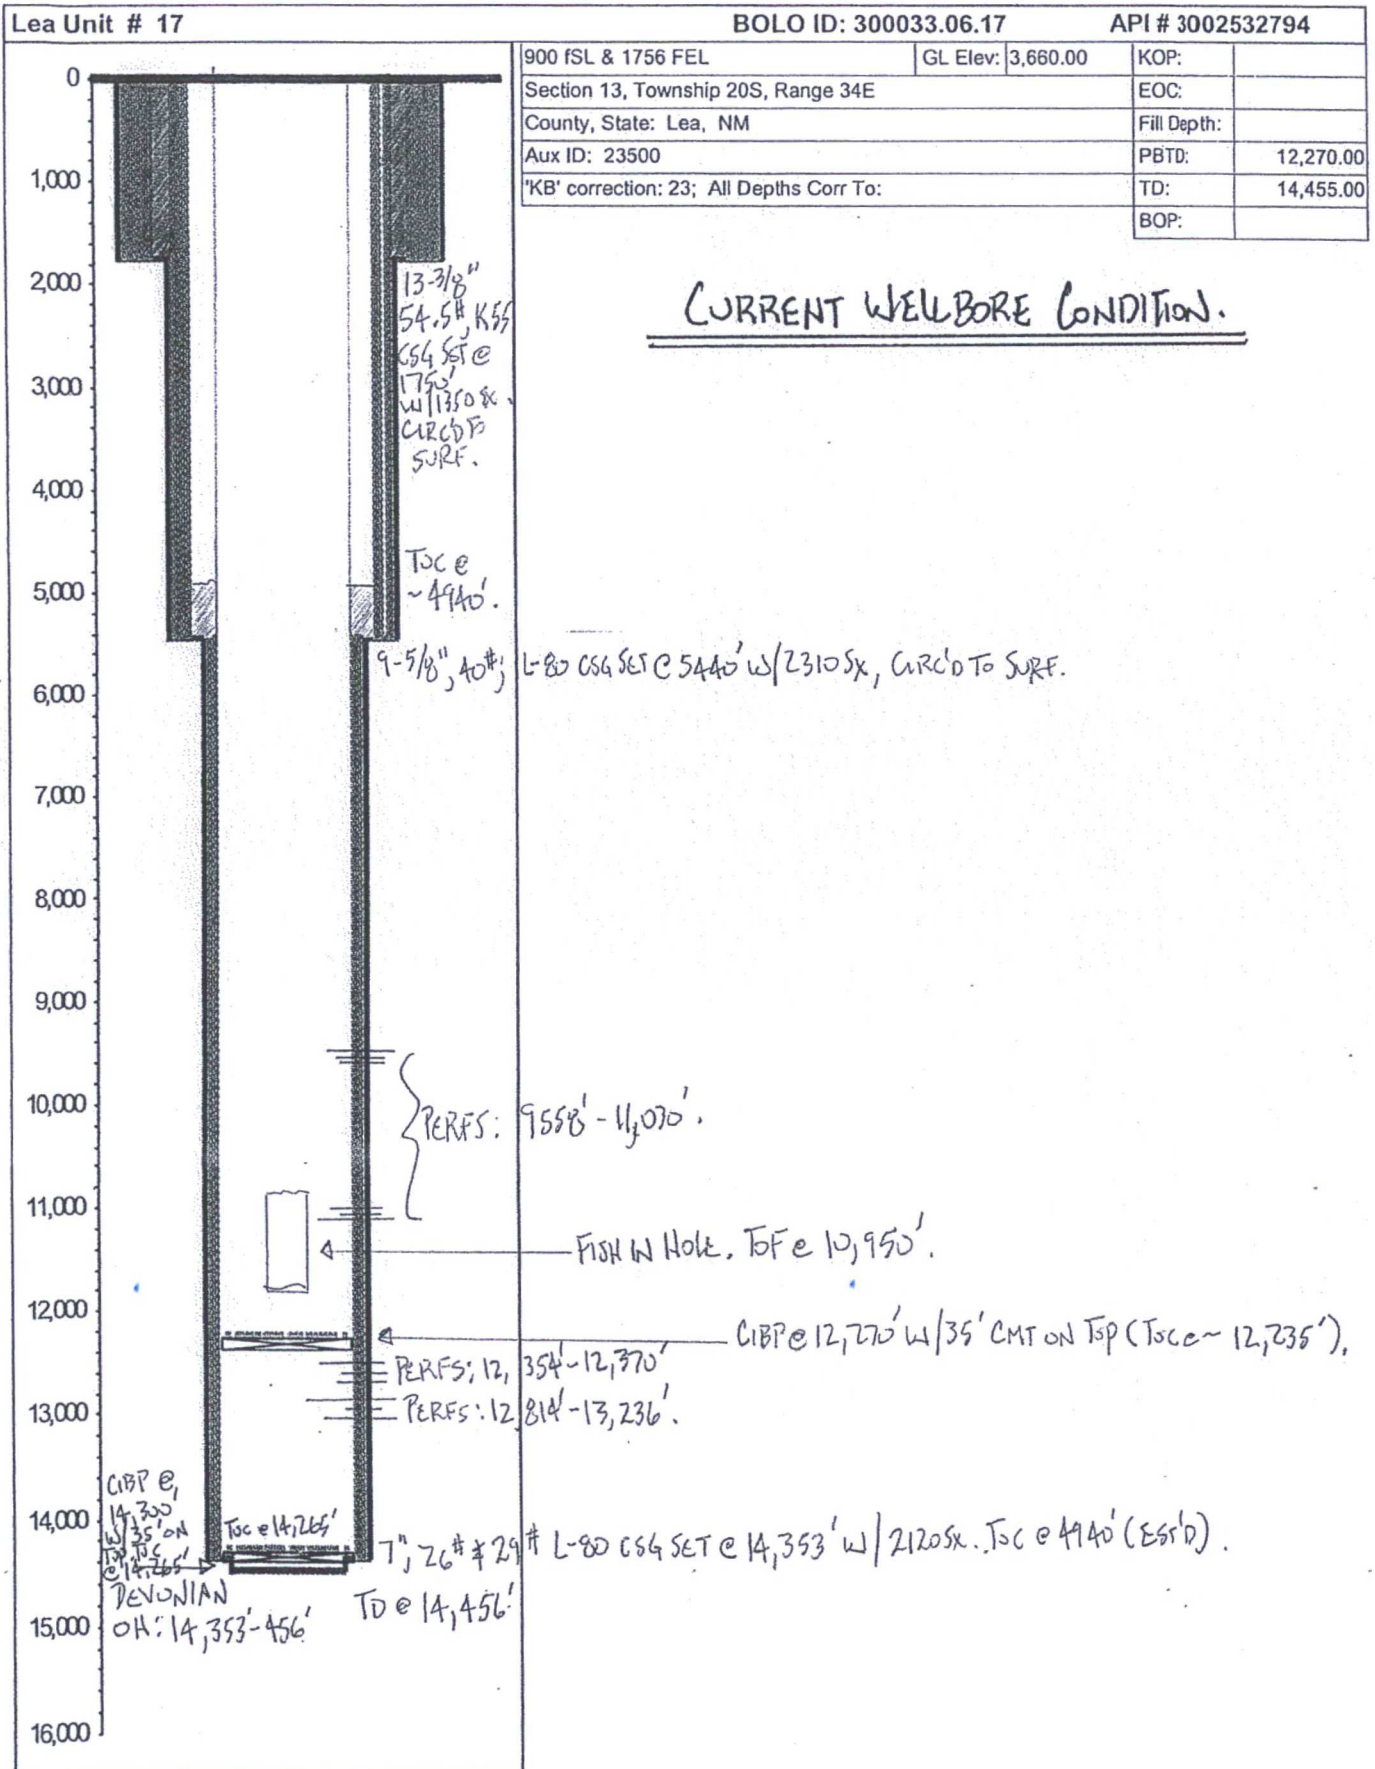 Lea Unit # 17 BOLO ID: 300033.06.17 API # 3002532794
900 fSL & 1756 FEL GL Elev: 3,660.00 KOP:
Section 13, Township 20S, Range 34E EOC:
County, State: Lea, NM Fill Depth:
Aux ID: 23500 PBTD: 12,270.00
'KB' correction: 23; All Depths Corr To: TD: 14,455.00
BOP:
CURRENT WELLBORE CONDITION.
0
1,000
2,000
3,000
4,000
5,000
6,000
7,000
8,000
9,000
10,000
11,000
12,000
13,000
14,000
15,000
16,000
13-3/8"
54.5#, K55
CSG SET @
1750'
W/1350 SX.
CIRC'D TO
SURF.
TOC @
~4940'.
9-5/8", 40#, L-80 CSG SET @ 5440' W/2310 SX, CIRC'D TO SURF.
PERFS: 9558'-11,030'.
FISH IN HOLE. TOF @ 10,950'.
CIBP @ 12,270' W/35' CMT ON TOP (TOC @ ~ 12,235').
PERFS: 12,354'-12,370'
PERFS: 12,814'-13,236'.
CIBP @
14,300'
W/35' ON
TOP. TOC
@ 14,265'
TOC @ 14,265'
7", 26# & 29# L-80 CSG SET @ 14,353' W/2120 SX. TOC @ 4940' (EST'D).
DEVONIAN
OH: 14,353'-456'
TD @ 14,456'